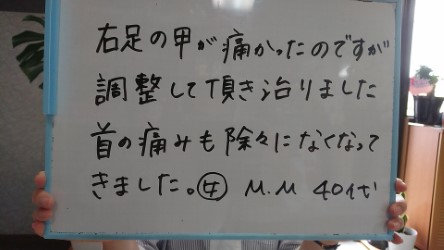 右足の甲が痛かったのですが
調整して頂き治りました
首の痛みも除々になくなって
きました。㊛ M.M 40代